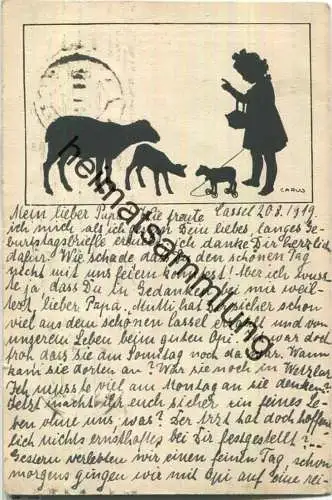 CARUS
Mein lieber Papa! Wie freute Cassel 20.8.1919.
ich mich als ich Dein liebes, langes Ge-
burtstagsbriefle ich danke Dir herzlich
dafür. Wie schade daß den schönen Tag
nicht mit uns feiern Aber ich wuss-
te ja, dass Du in Gedanken bei mir weil-
test, lieber Papa. Mutti hat Dir sicher schon
viel aus dem schönen Cassel erzählt und von
unserem Leben beim guten Opi. war doch
froh dass sie am Sonntag noch da war. Wann
kam sie dorten an? War sie noch in Wetzlar
Ich musste viel am Montag an sie denken!
Jetzt macht ihr euch sicher ein feines Le-
ben ohne uns, was? Der Arzt hat doch hoffen-
lich nichts ernsthaftes bei Dir festgestellt?
Gestern verlebten wir einen feinen Tag, schon
morgens gingen wir mit Opi auf eine
heimatsammlung